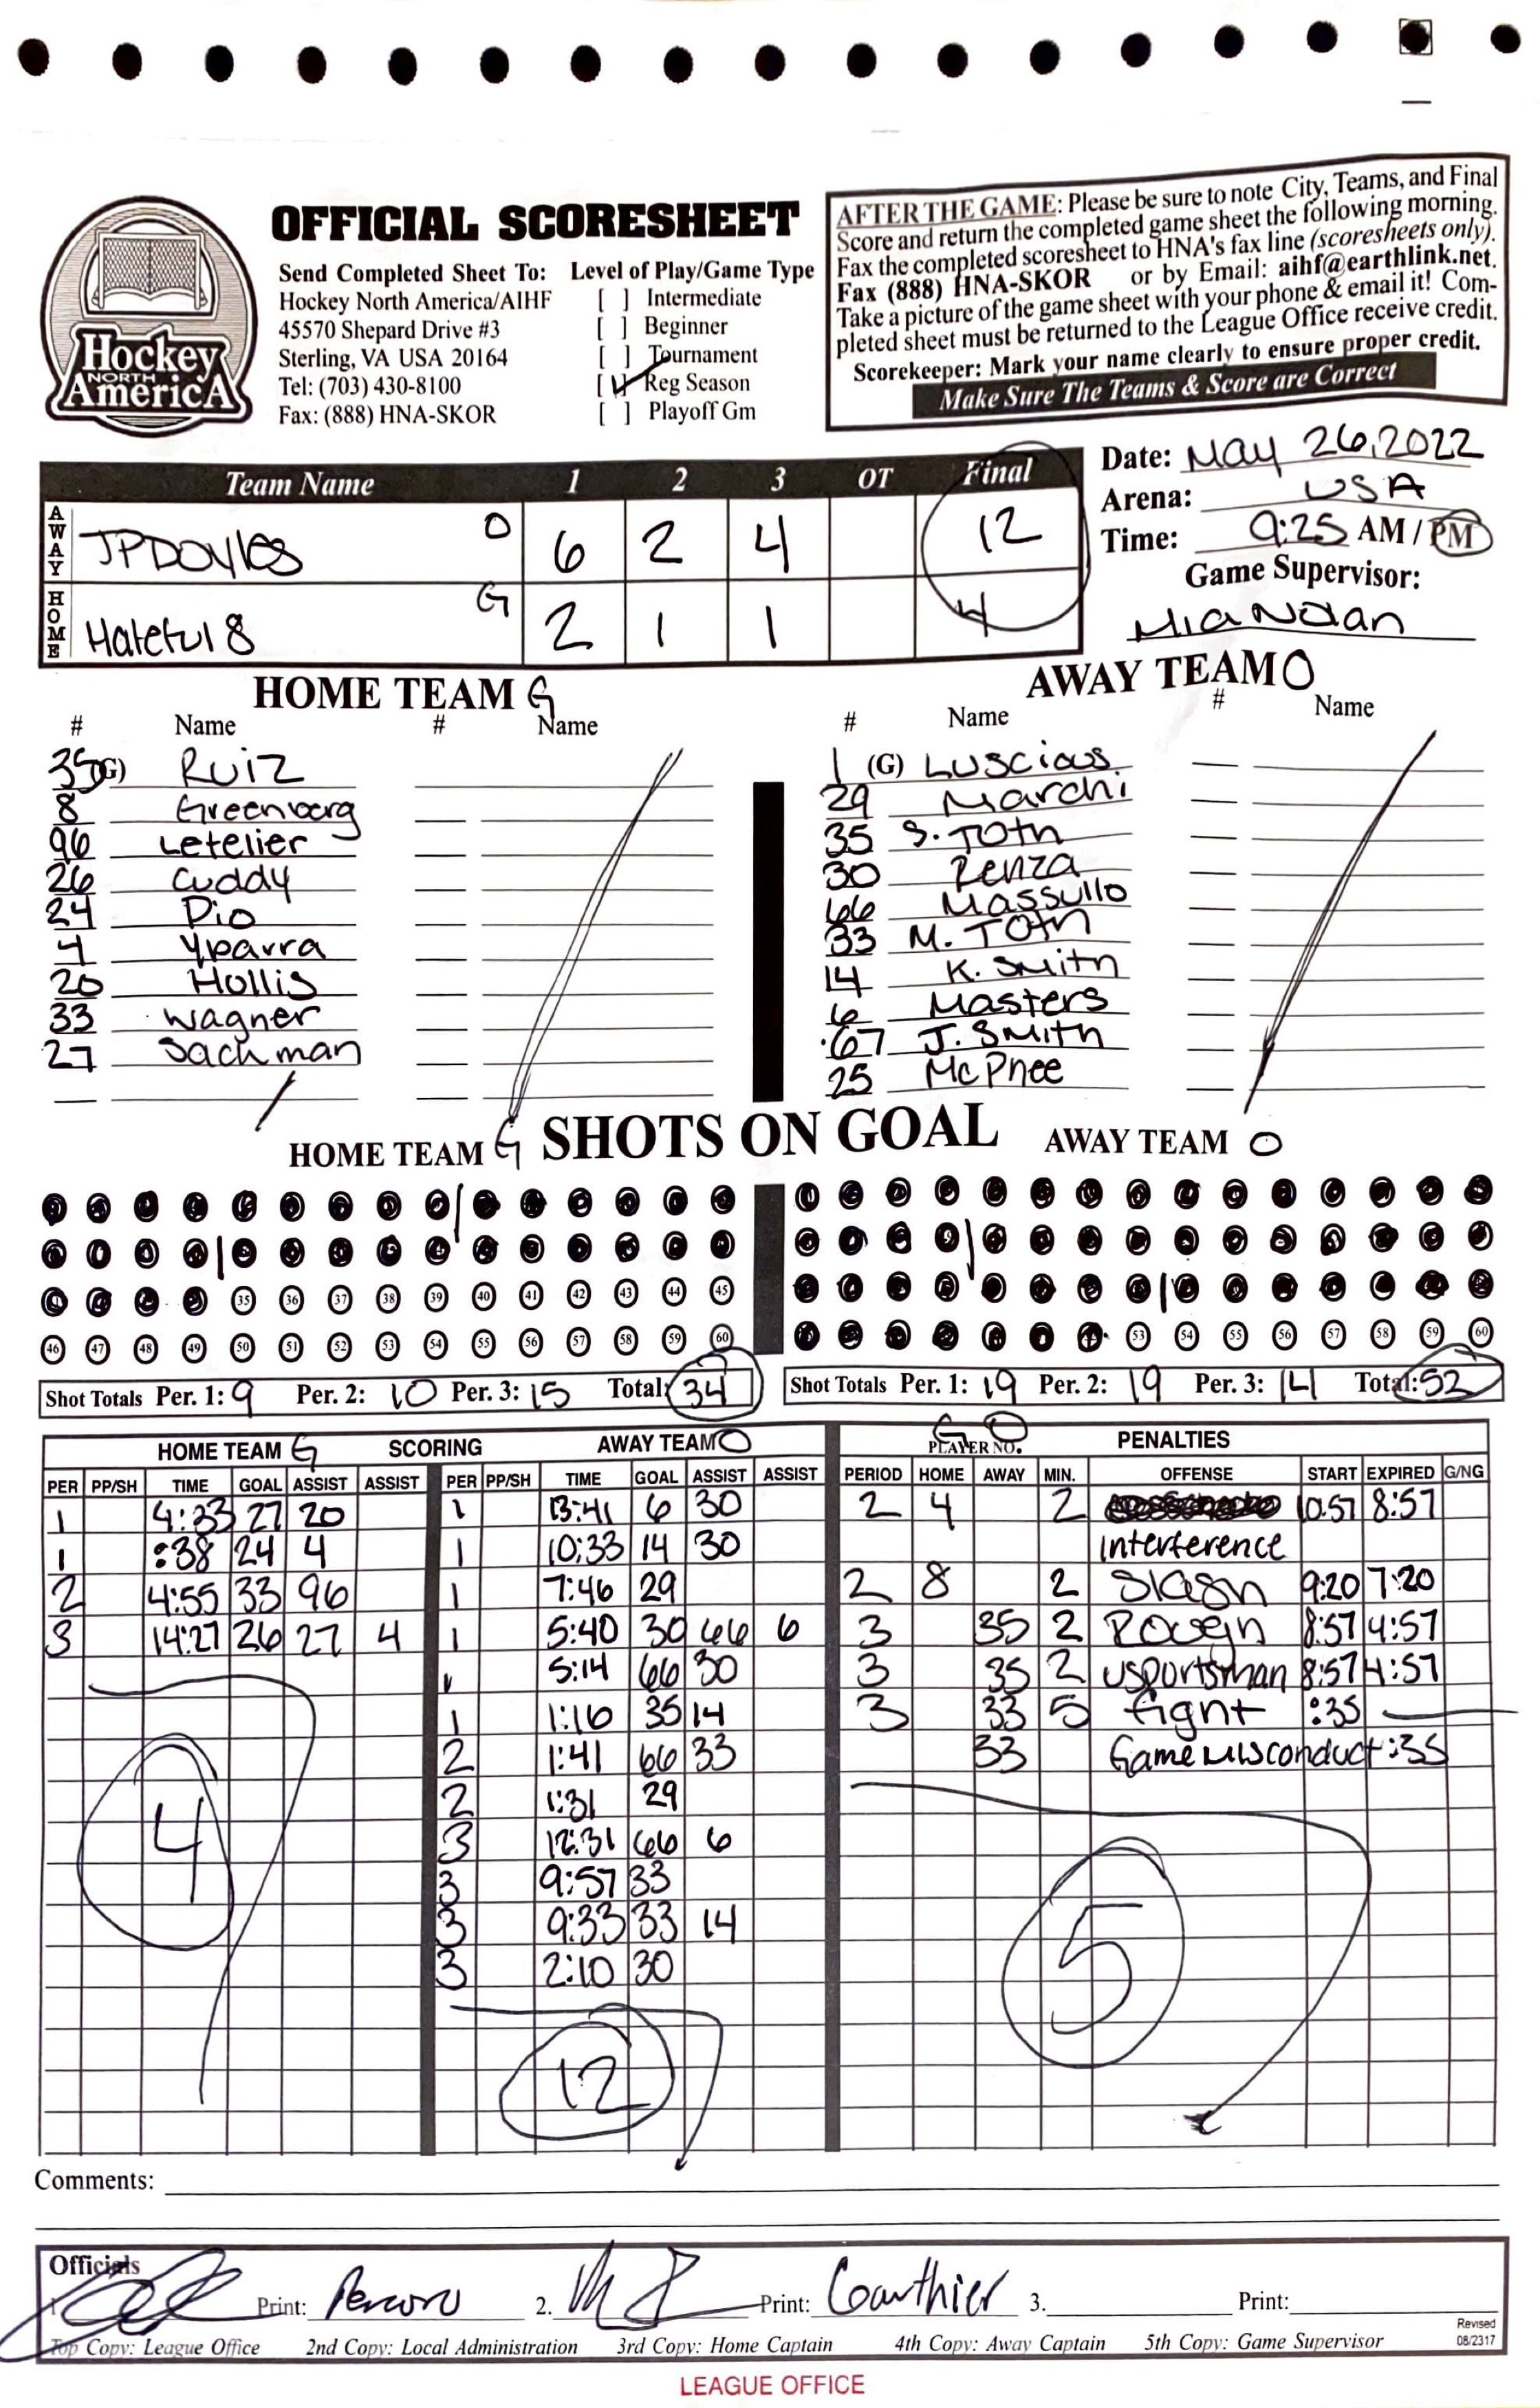 OFFICIAL SCORESHEET
Send Completed Sheet To:
Hockey North America/AIHF
45570 Shepard Drive #3
Sterling, VA USA 20164
Tel: (703) 430-8100
Fax: (888) HNA-SKOR
Level of Play/Game Type
[ ] Intermediate
[ ] Beginner
[ ] Tournament
[✓] Reg Season
[ ] Playoff Gm
Hockey
NORTH
AmericA
AFTER THE GAME: Please be sure to note City, Teams, and Final
Score and return the completed game sheet the following morning.
Fax the completed scoresheet to HNA's fax line (scoresheets only).
Fax (888) HNA-SKOR or by Email: aihf@earthlink.net.
Take a picture of the game sheet with your phone & email it! Com-
pleted sheet must be returned to the League Office receive credit.
Scorekeeper: Mark your name clearly to ensure proper credit.
Make Sure The Teams & Score are Correct
Team Name 1 2 3 OT Final
AWAY JPDOYles O 6 2 4 12
HOME Hateful 8 G 2 1 1 4
Date: May 26, 2022
Arena: USA
Time: 9:25 AM / PM
Game Supervisor:
Mia Nolan
HOME TEAM G
# Name # Name
35 (G) Ruiz
8 Greenberg
96 Letelier
26 Cuddy
24 Dio
4 Ybarra
20 Hollis
33 Wagner
27 Sachman
AWAY TEAM O
# Name # Name
1 (G) Luscious
29 Marchi
35 S. Toth
30 Penza
66 Massullo
33 M. Toth
14 K. Smith
6 Masters
67 J. Smith
25 McPhee
HOME TEAM G SHOTS ON GOAL AWAY TEAM O
35 36 37 38 39 40 41 42 43 44 45
46 47 48 49 50 51 52 53 54 55 56 57 58 59 60
53 54 55 56 57 58 59 60
Shot Totals Per. 1: 9 Per. 2: 10 Per. 3: 15 Total: 34
Shot Totals Per. 1: 19 Per. 2: 19 Per. 3: 14 Total: 52
HOME TEAM G SCORING AWAY TEAM O
PER PP/SH TIME GOAL ASSIST ASSIST
1 4:33 27 20
1 :38 24 4
2 4:55 33 96
3 14:27 26 27 4
4
PER PP/SH TIME GOAL ASSIST ASSIST
1 13:41 6 30
1 10:33 14 30
1 7:46 29
1 5:40 30 66 6
1 5:14 66 30
1 1:16 35 14
2 1:41 66 33
2 1:31 29
3 12:31 66 6
3 9:57 33
3 9:33 33 14
3 2:10 30
12
G O
PLAYER NO. PENALTIES
PERIOD HOME AWAY MIN. OFFENSE START EXPIRED G/NG
2 4 2 10:57 8:57
Interference
2 8 2 Slash 9:20 7:20
3 35 2 Rough 8:57 4:57
3 35 2 usportsman 8:57 4:57
3 33 5 fight :35
33 Game Misconduct :35
5
Comments:
Officials
1. Print: 2. Print: Gauthier 3. Print:
Top Copy: League Office 2nd Copy: Local Administration 3rd Copy: Home Captain 4th Copy: Away Captain 5th Copy: Game Supervisor
Revised
08/2317
LEAGUE OFFICE